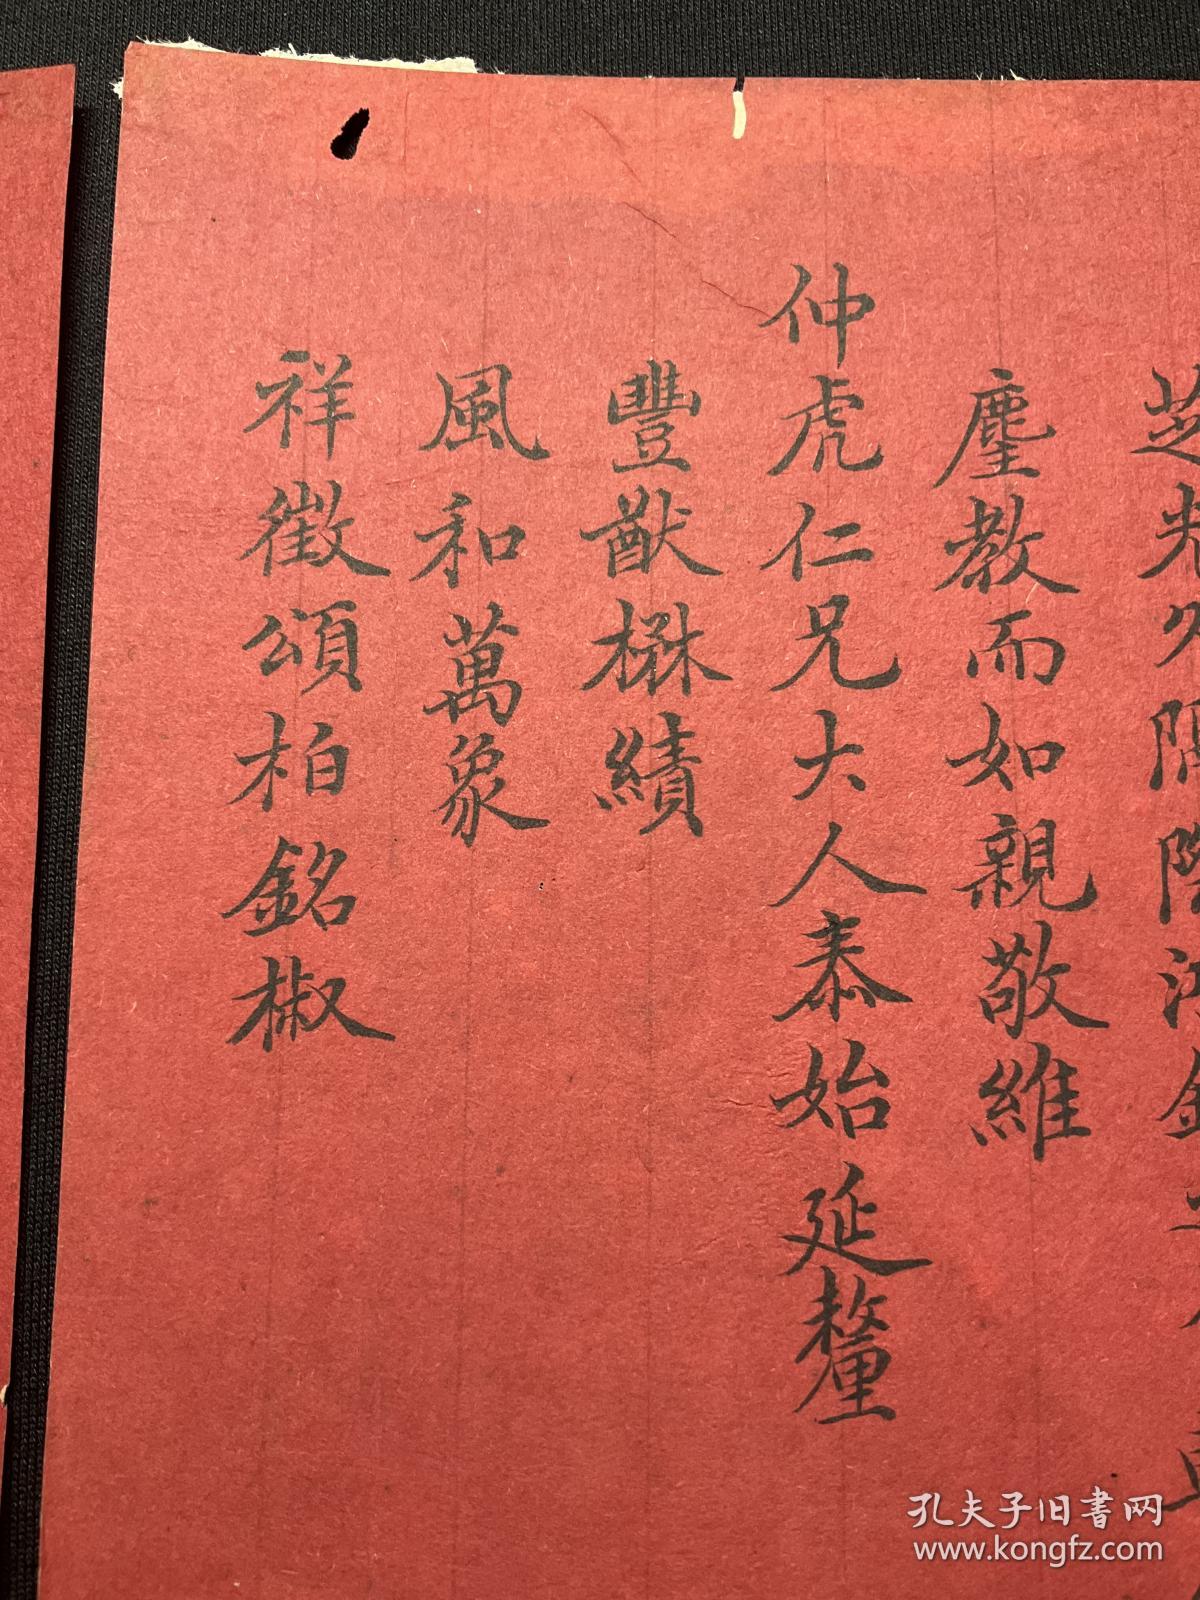 芝光久隔
麈教而如親敬維
仲虎仁兄大人泰始延釐
豐猷楙績
風和萬象
祥徵頌柏銘椒
孔夫子旧書网
www.kongfz.com